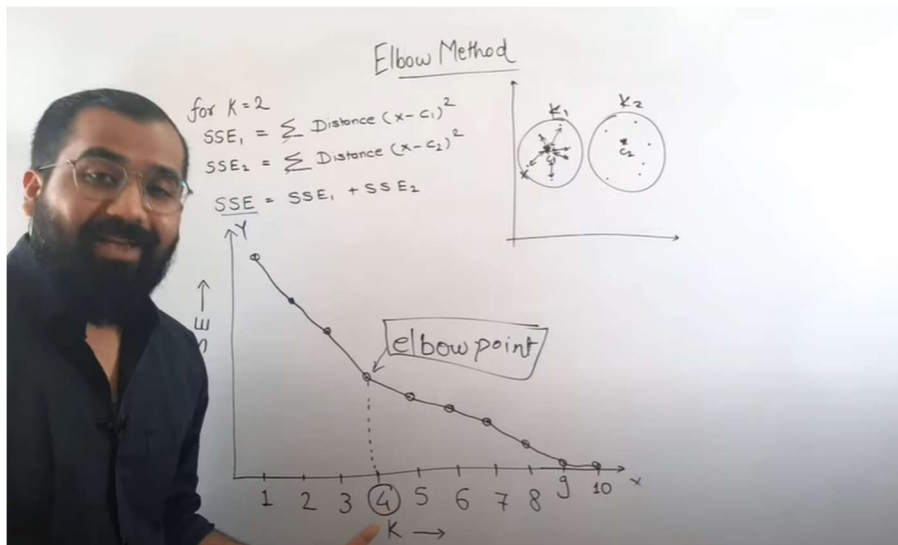 Elbow Method
for K=2
SSE₁ = Σ Distance (x-c₁)²
SSE₂ = Σ Distance (x-c₂)²
SSE = SSE₁ + SSE₂
K₁
K₂
C₁
C₂
Y
SE →
elbow point
1 2 3 4 5 6 7 8 9 10 X
K →